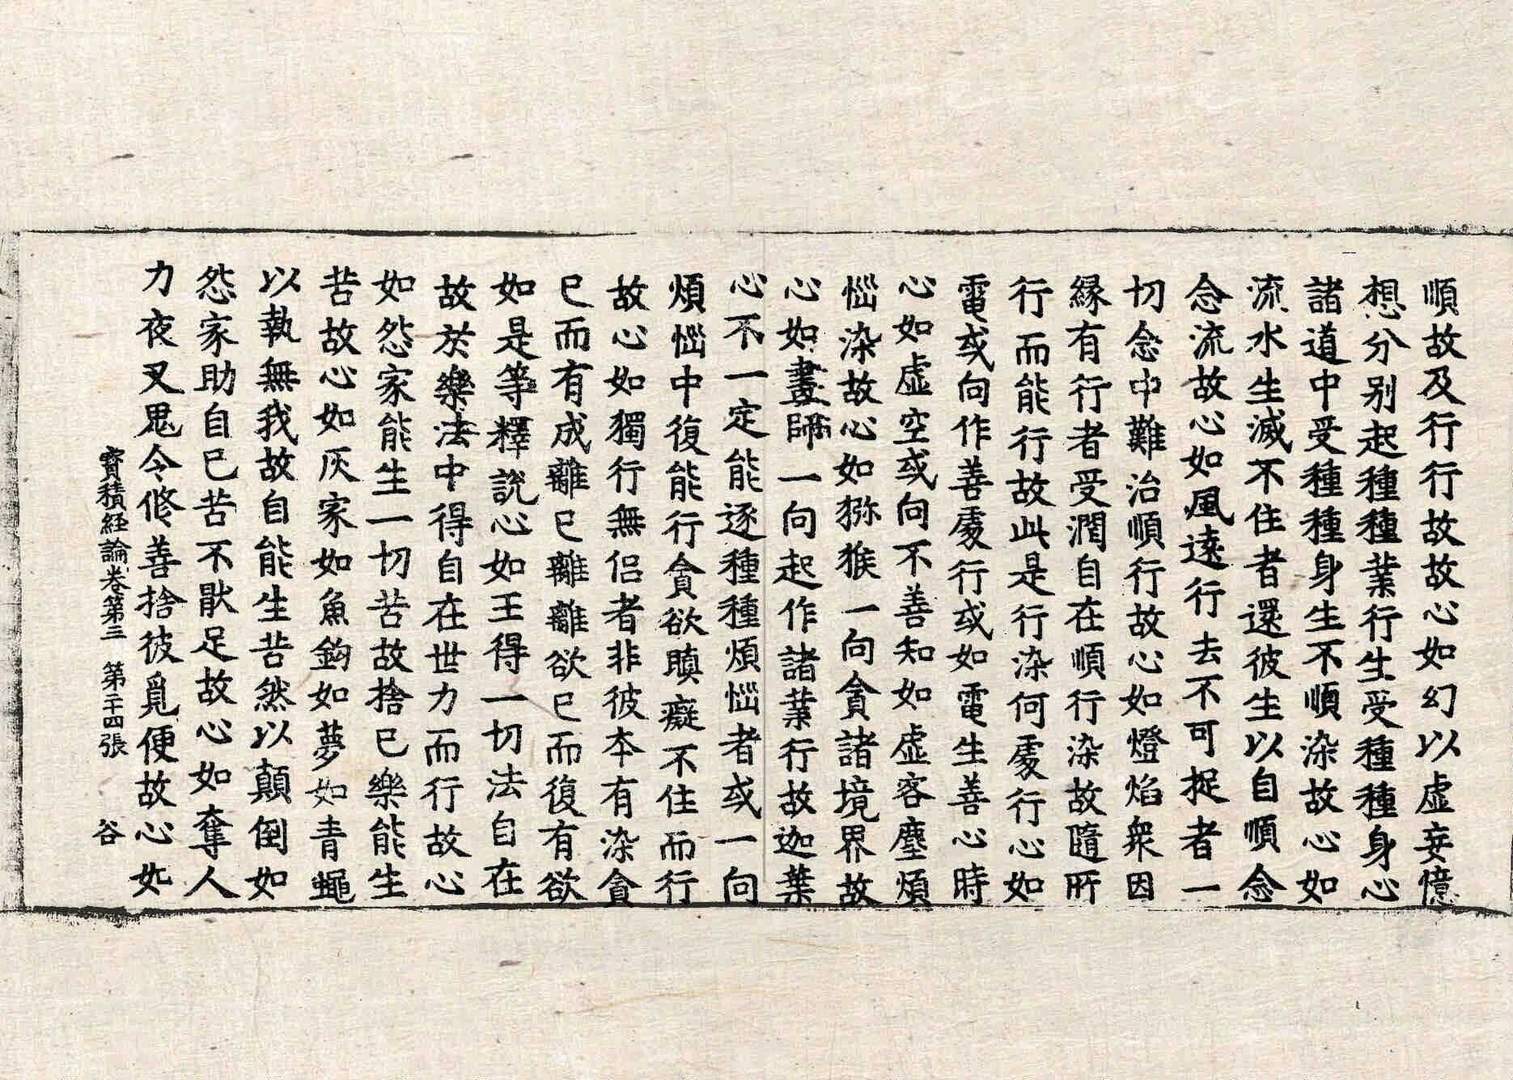 順故及行行故故心如幻以虛妄憶
想分別起種種業行生受種種身心
諸道中受種種身生不順染故心如
流水生滅不住者還彼生以自順念
念流故心如風遠行去不可捉者一
切念中難治順行故心如燈焰衆因
緣有行者受潤自在順行染故隨所
行而能行故此是行染何處行心如
電或向作善處行或如電生善心時
心如虛空或向不善知如虛客塵煩
惱染故心如猕猴一向貪諸境界故
心如畫師一向起作諸業行故迦葉
心不一定能逐種種煩惱者或一向
煩惱中復能行貪欲瞋癡不住而行
故心如獨行無侣者非彼本有染貪
已而有成離已離離欲已而復有欲
如是等釋說心如王得一切法自在
故於樂法中得自在世力而行故心
如怨家能生一切苦故捨已樂能生
苦故心如灰家如魚鈎如夢如青蠅
以執無我故自能生苦然以顛倒如
怨家助自已苦不猒足故心如奪人
力夜叉鬼令修善捨彼覓便故心如
寶積經論卷第三 第二十四張 谷